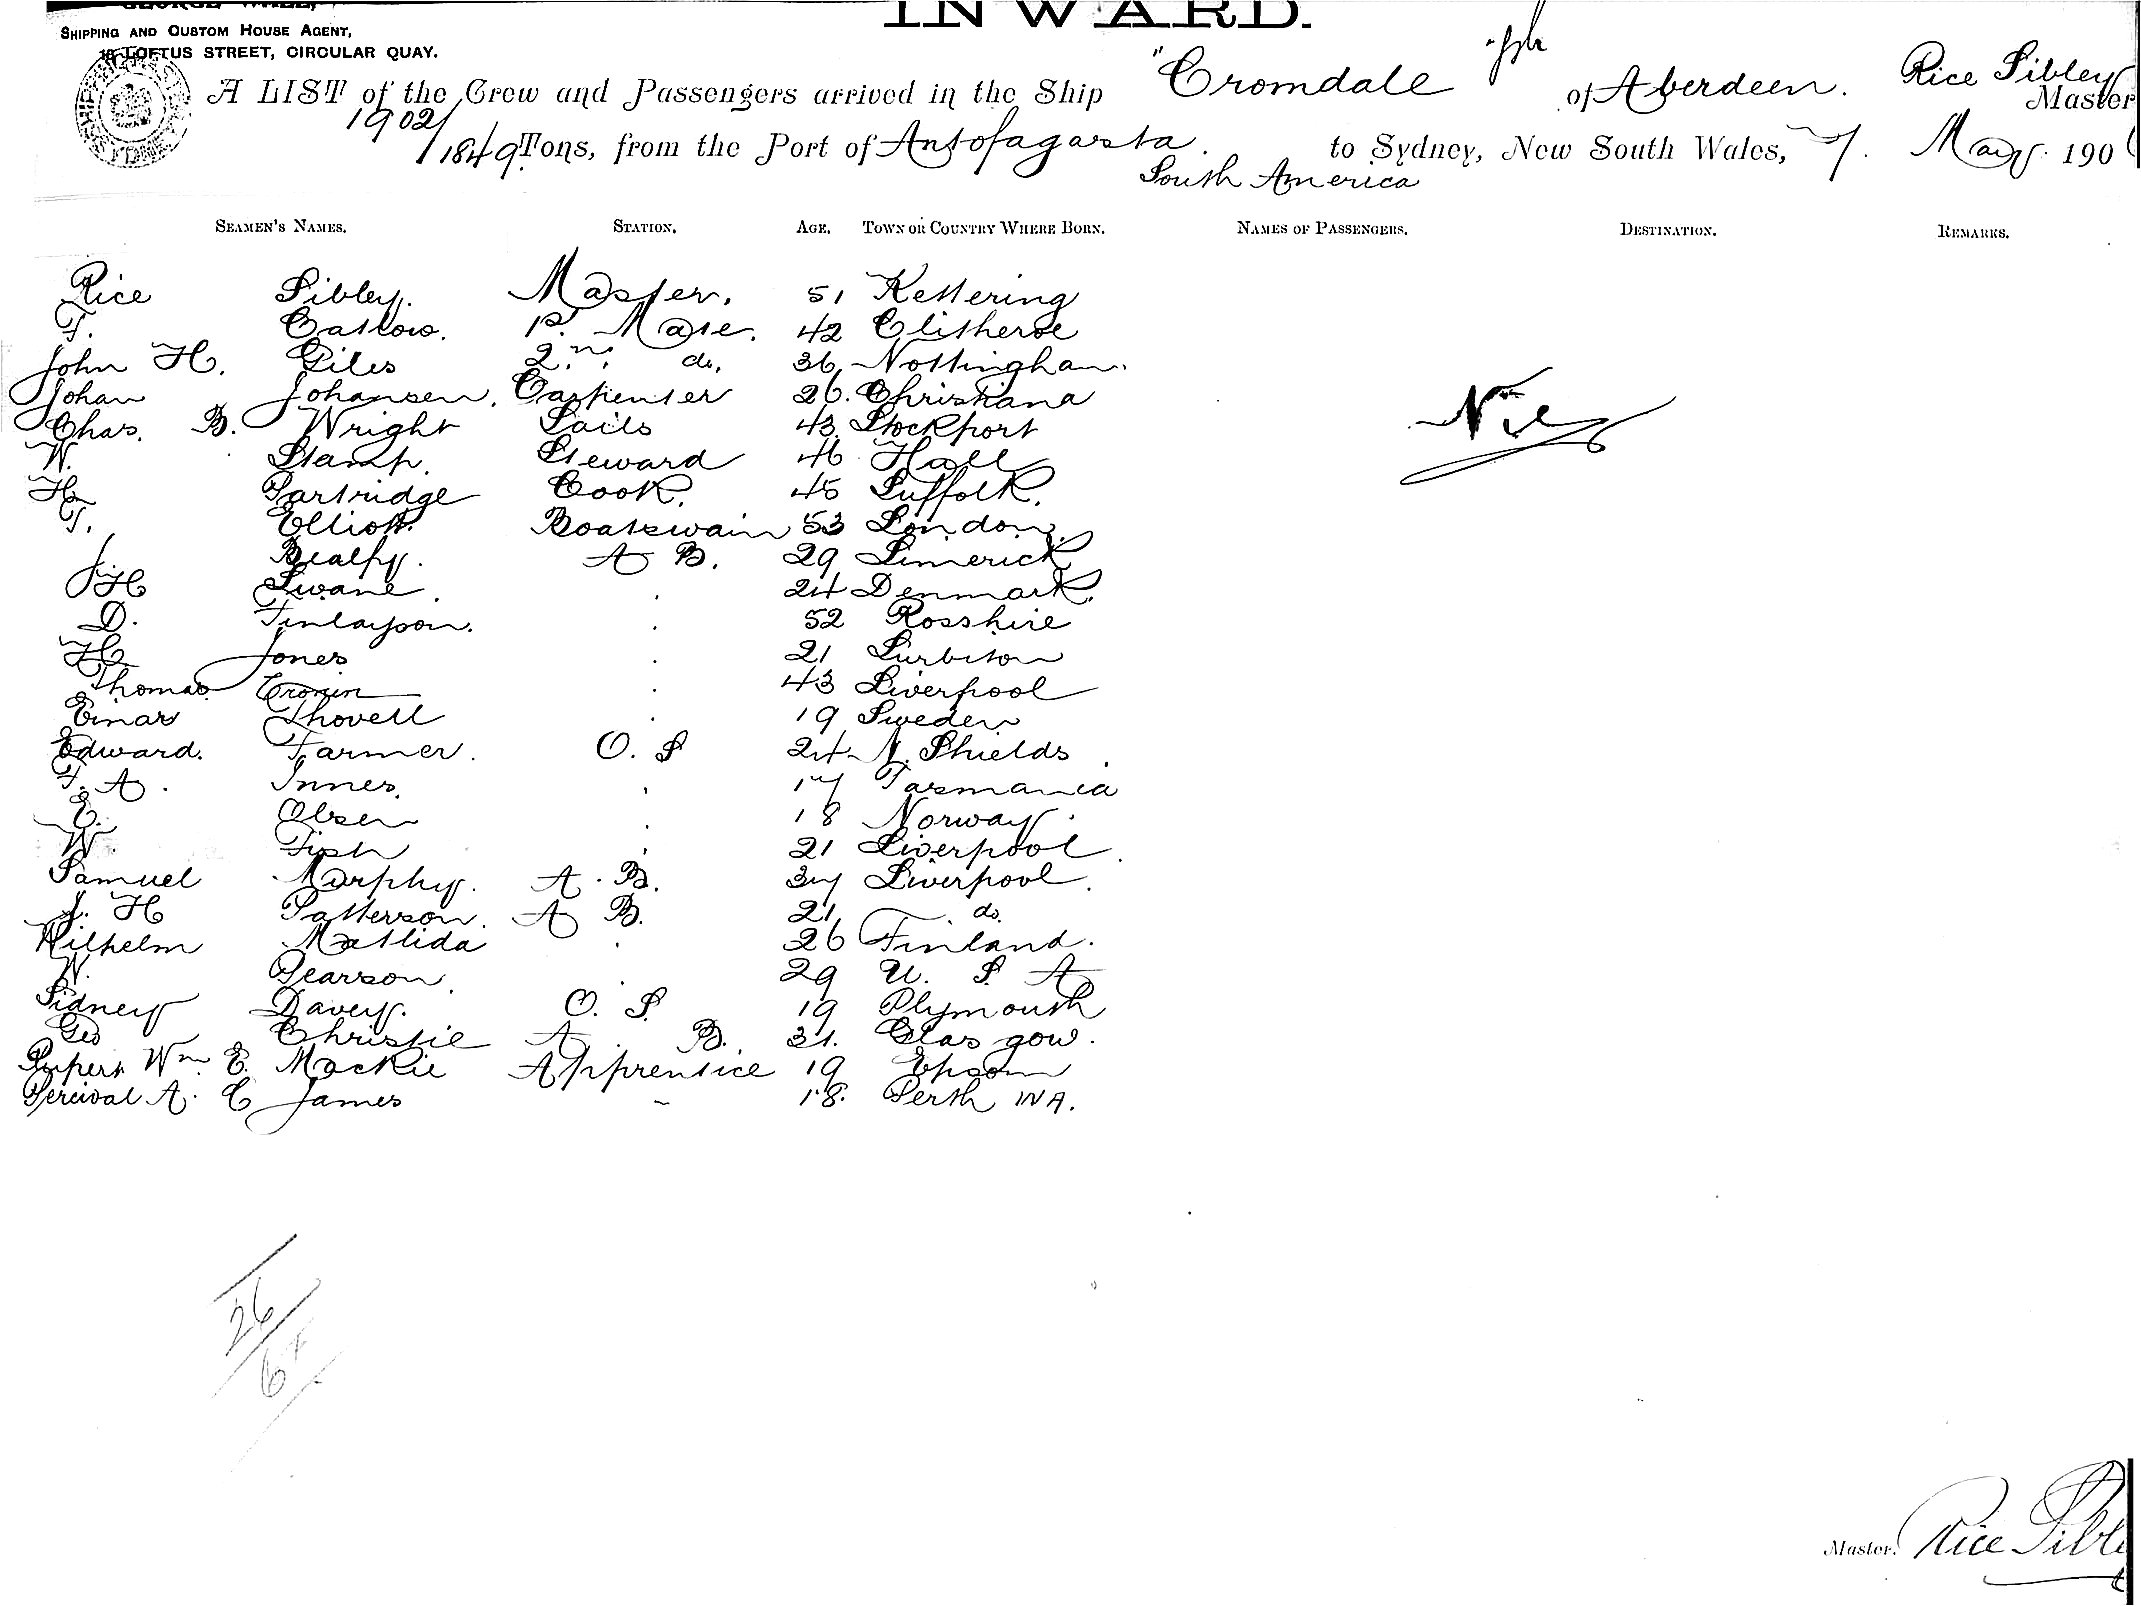 INWARD.
SHIPPING AND CUSTOM HOUSE AGENT,
LOFTUS STREET, CIRCULAR QUAY.
A LIST of the Crew and Passengers arrived in the Ship "Cromdale" of Aberdeen. Rice Sibley Master
1902/1849 Tons, from the Port of Antofagasta. to Sydney, New South Wales, 7. May 190
South America
SEAMEN'S NAMES. STATION. AGE. TOWN OR COUNTRY WHERE BORN. NAMES OF PASSENGERS. DESTINATION. REMARKS.
Rice Sibley. Master. 51 Kettering
T. Catlow. 1st. Mate. 42 Clitheroe
John H. Giles 2nd. do. 36 Nottingham.
Johan Johansen. Carpenter 26. Christiana
Chas. B. Wright Sails 43 Stockport
Nil
W. Stamp. Steward 46 Hull
H. Partridge Cook. 45 Suffolk.
T. Elliott. Boatswain 53 London.
J. Bealfy. A B. 29 Limerick
H Swane. 24 Denmark.
D. Finlayson. 52 Rosshire
H Jones 21 Surbiton
Thomas Cronin 43 Liverpool
Einar Thovell 19 Sweden
Edward. Farmer. O. S 24 N. Shields
F. A. Innes. 17 Tasmania
E. Olsen 18 Norway.
W. Fish 21 Liverpool.
Samuel Murphy. A. B. 37 Liverpool.
J. H Patterson. A B. 21 do.
Wilhelm Matlida 26 Finland.
W. Pearson. 29 U. S. A
Sidney Davey. O. S. 19 Plymouth
Geo Christie A B. 31. Glasgow.
Rupert Wm. E. Mackie Apprentice 19 Epsom
Percival A. C James 18. Perth WA.
26
6
Master. Rice Sibl